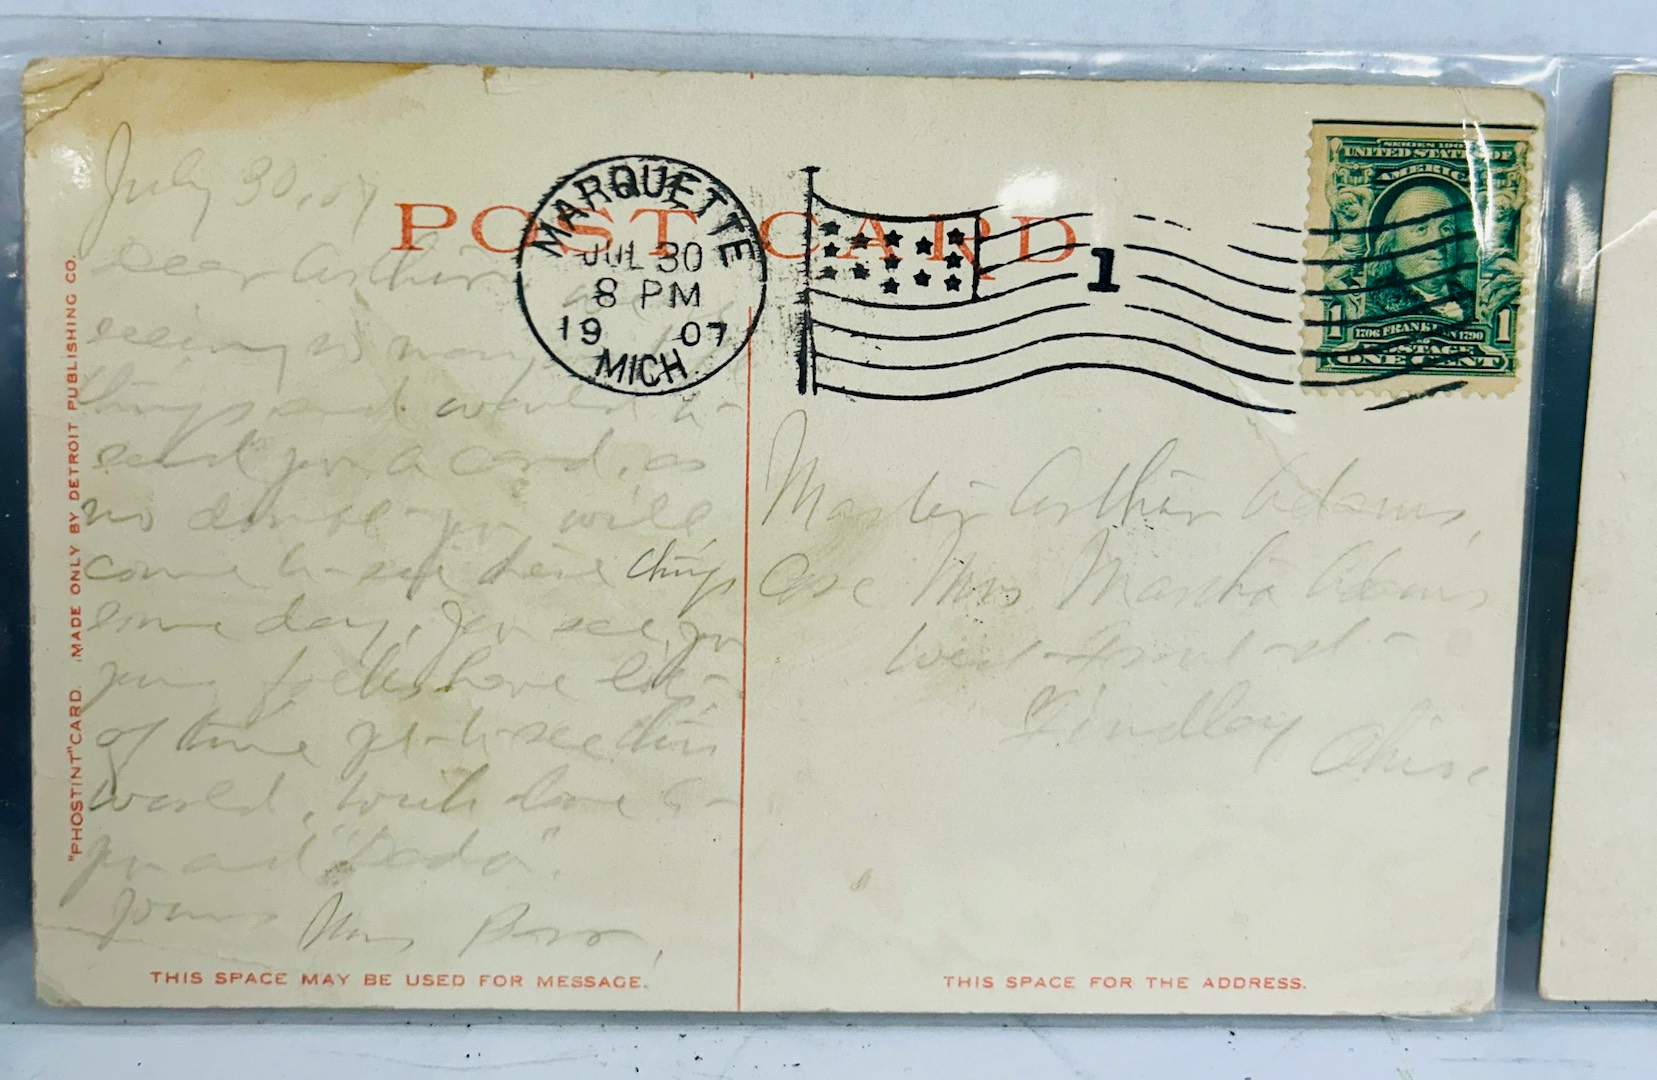 July 30, 07
POST CARD
MARQUETTE
JUL 30
8 PM
1907
MICH.
1
SERIES 1902
UNITED STATES OF
AMERICA
1 1706 FRANKLIN 1790 1
POSTAGE
ONE CENT
Dear Arthur
seeing so many
things and would
send you a card, as
no doubt you will
come to see these things
some day, you see you
young folks have lots
of time yet to see this
world, with love to
you and "Dada".
Yours Mrs
Master Arthur Adams,
Care Mrs Martha Adams
West Front st
Findley Ohio
"PHOSTINT" CARD. MADE ONLY BY DETROIT PUBLISHING CO.
THIS SPACE MAY BE USED FOR MESSAGE.
THIS SPACE FOR THE ADDRESS.